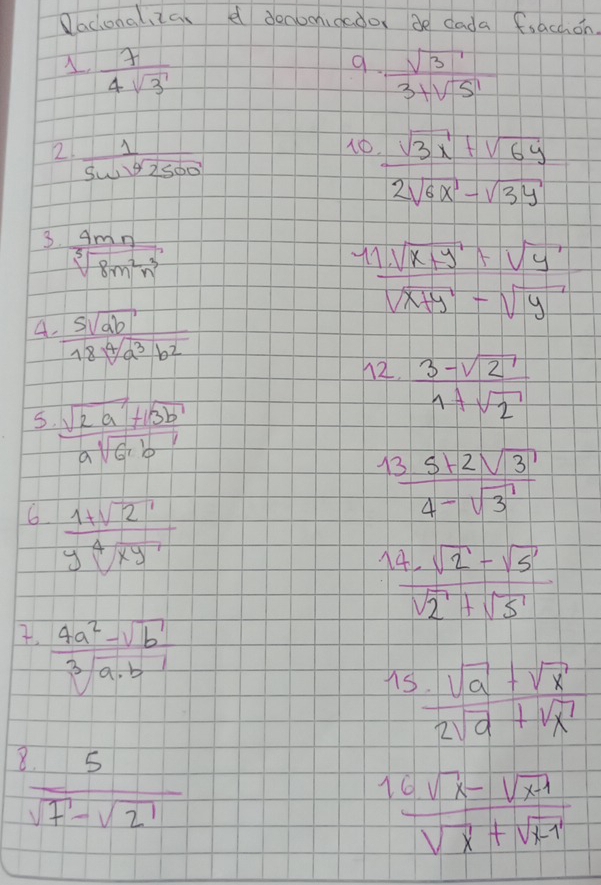 Racionalizar el denominador de cada fracción.
1. 7 / 4√3
2. 1 / 5w ∜2500
3. 4mn / ⁵√8m²n³
4. 5√ab / 18 ∜a³b²
5. √2a + √3b / a√6b
6. 1+√2 / y ∜xy
7. 4a² - √b / ∛a.b
8. 5 / √7 - √2
9. √3 / 3+√5
10. √3x + √6y / 2√6x - √3y
11. √x+y + √y / √x+y - √y
12. 3-√2 / 1+√2
13 5+2√3 / 4-√3
14. √2 - √5 / √2 + √5
15. √a + √x / 2√a + √x
16. √x - √x-1 / √x + √x-1